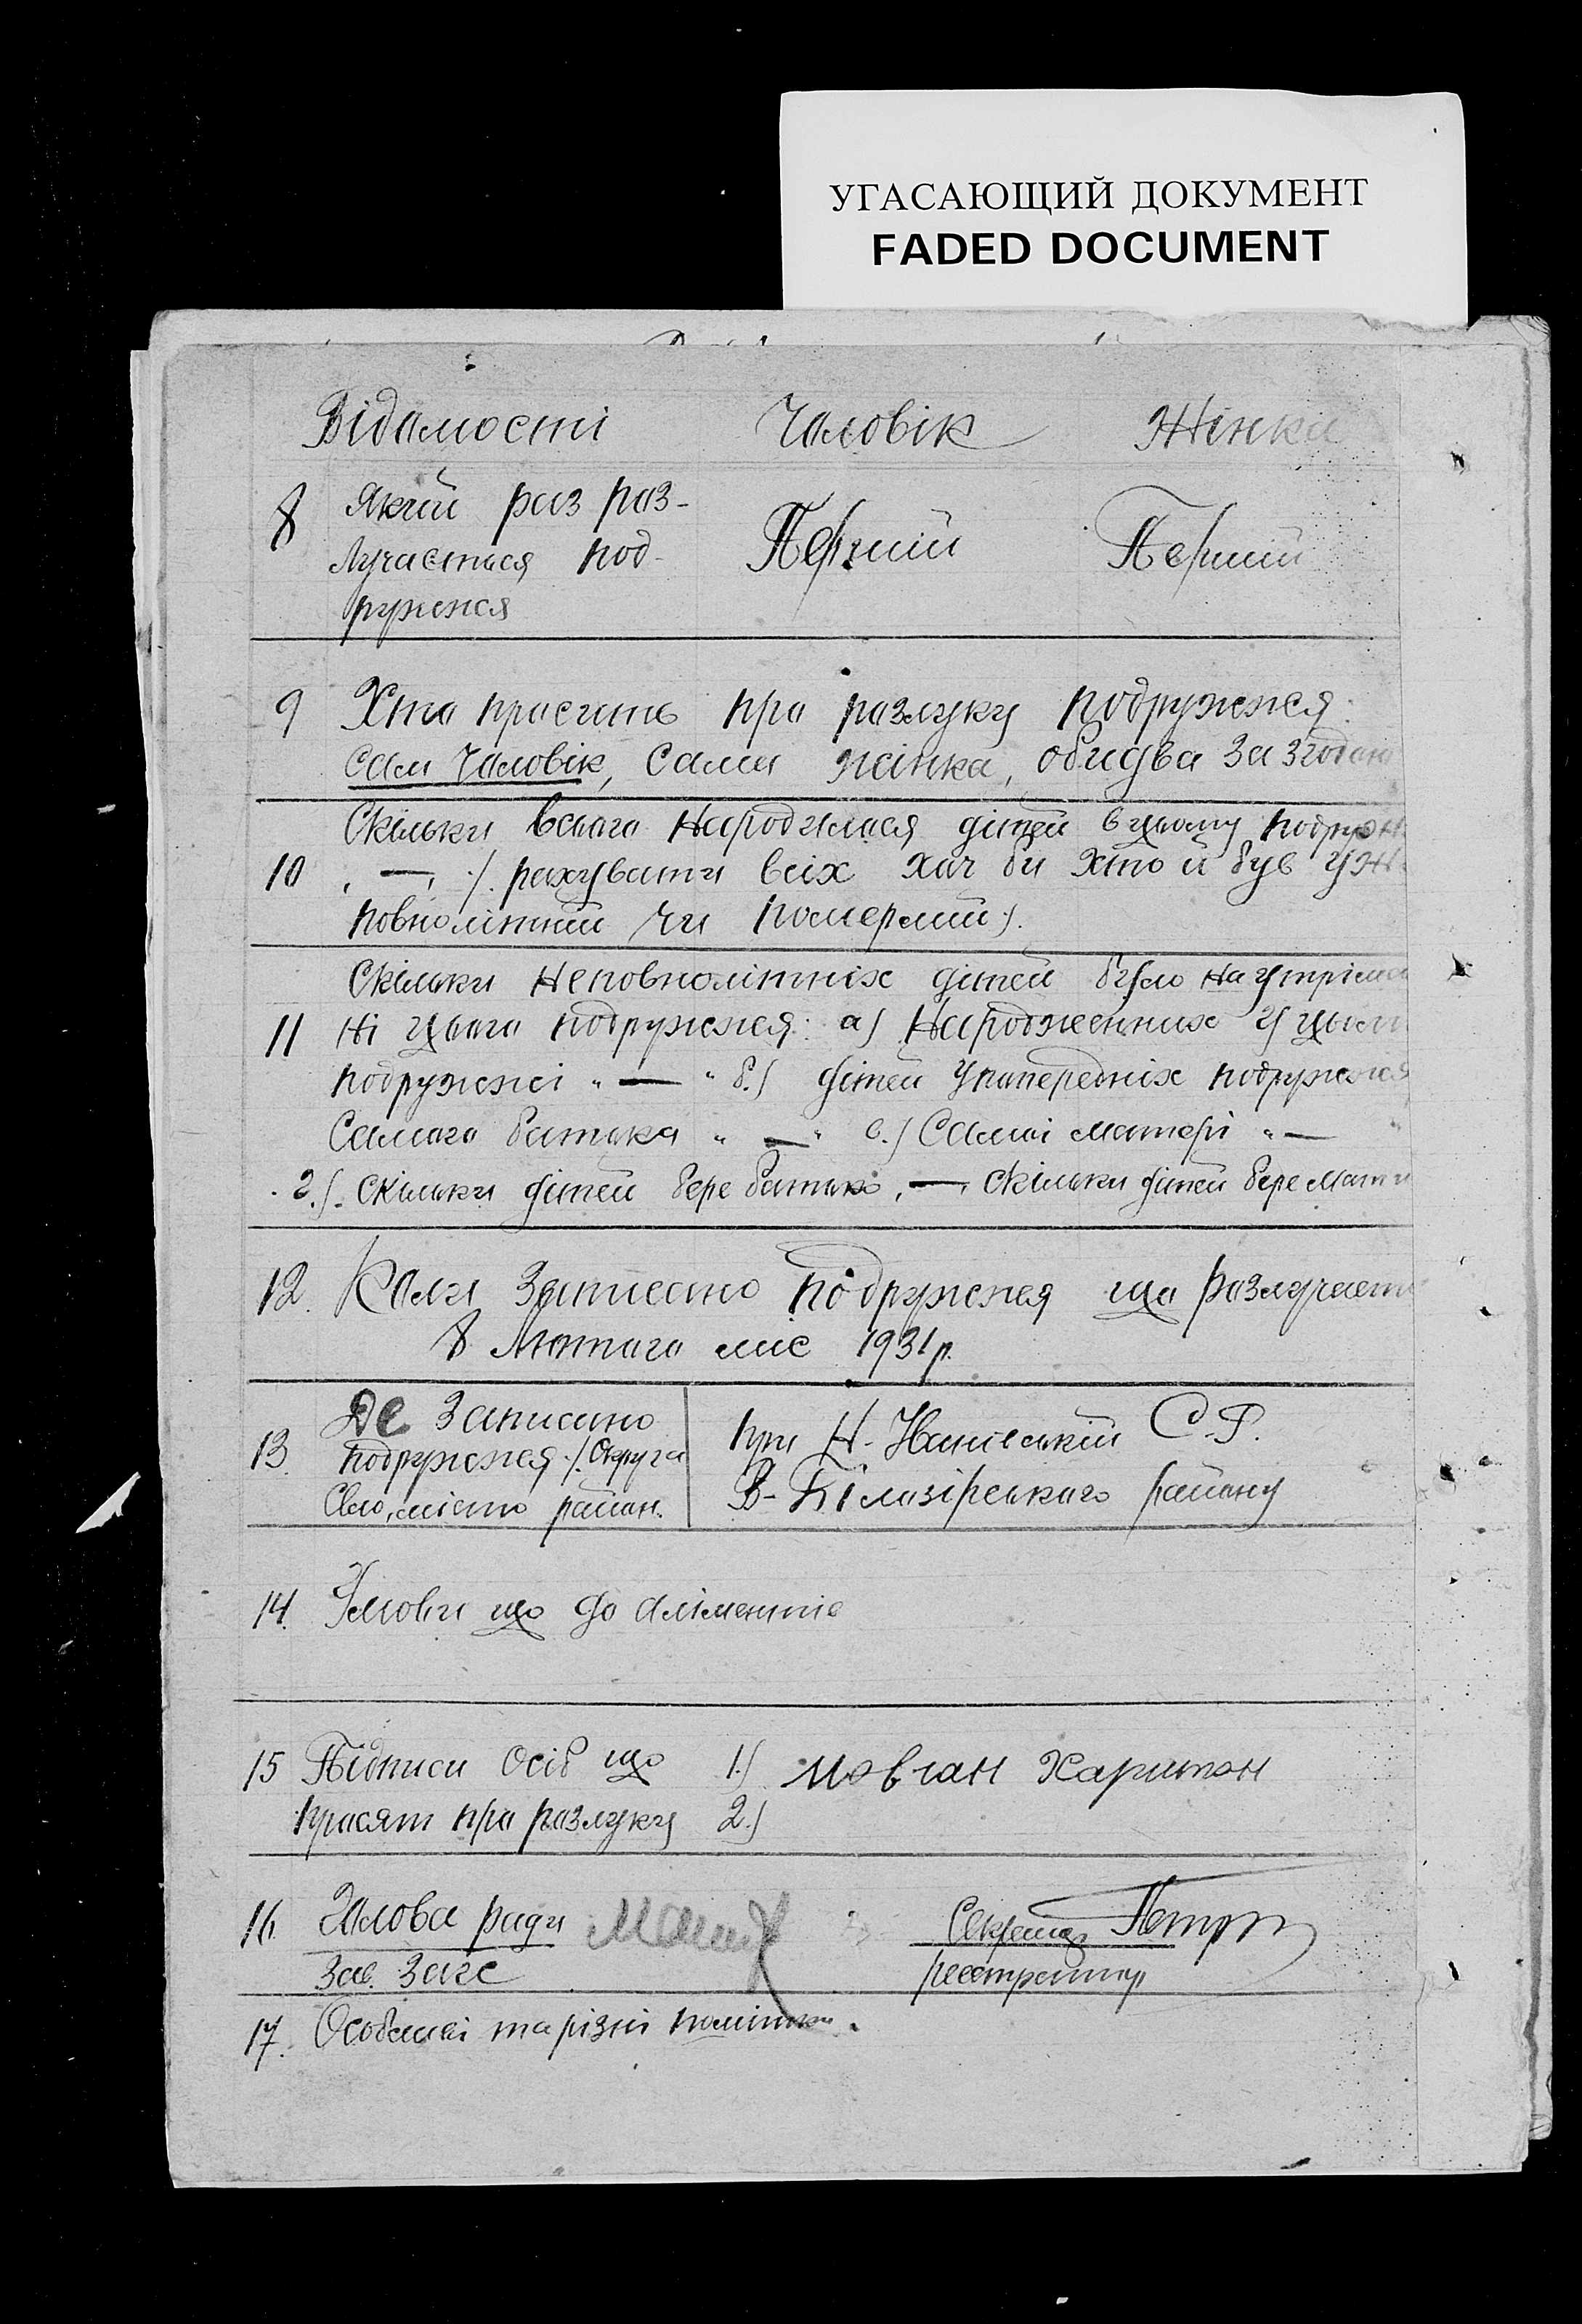 УГАСАЮЩИЙ ДОКУМЕНТ
FADED DOCUMENT
Відомості Чоловік Жінка
8 Який раз роз-
лучається под-
ружжя Перший Перший
9 Хто просить про розлуку подружжя:
Сам Чоловік, Сама жінка, обидва За Згодою
Скільки всього Народилося дітей в цьому подруж
10 „ — „ /. рахувати всіх хоч би хто й був уже
повнолітній чи померлий /.
Скільки Неповнолітніх дітей було на утріма
11 ні цього подружжя: а/ Народженних у цьом
подружжі „ — „ б./ дітей У попередніх подружжя
Самого батька „ — „ в./ Самої матері „ —
г./. Скільки дітей бере батько, —, скільки дітей бере мати
12. Коли Записано подружжя що розлучаєт
8 Лютого міс 1931 р.
13. Де Записано
подружжя /. Округа
Село, місто район.
при Н- С.Р.
В-Білозірського району
14. Умови що до аліментів
15 Підписи осіб що 1./ Мовчан Харитон
просят про розлуку 2./
16. Голова ради Секретар
Зав. Загс реєстратор
17. Особливі та різні помітки.